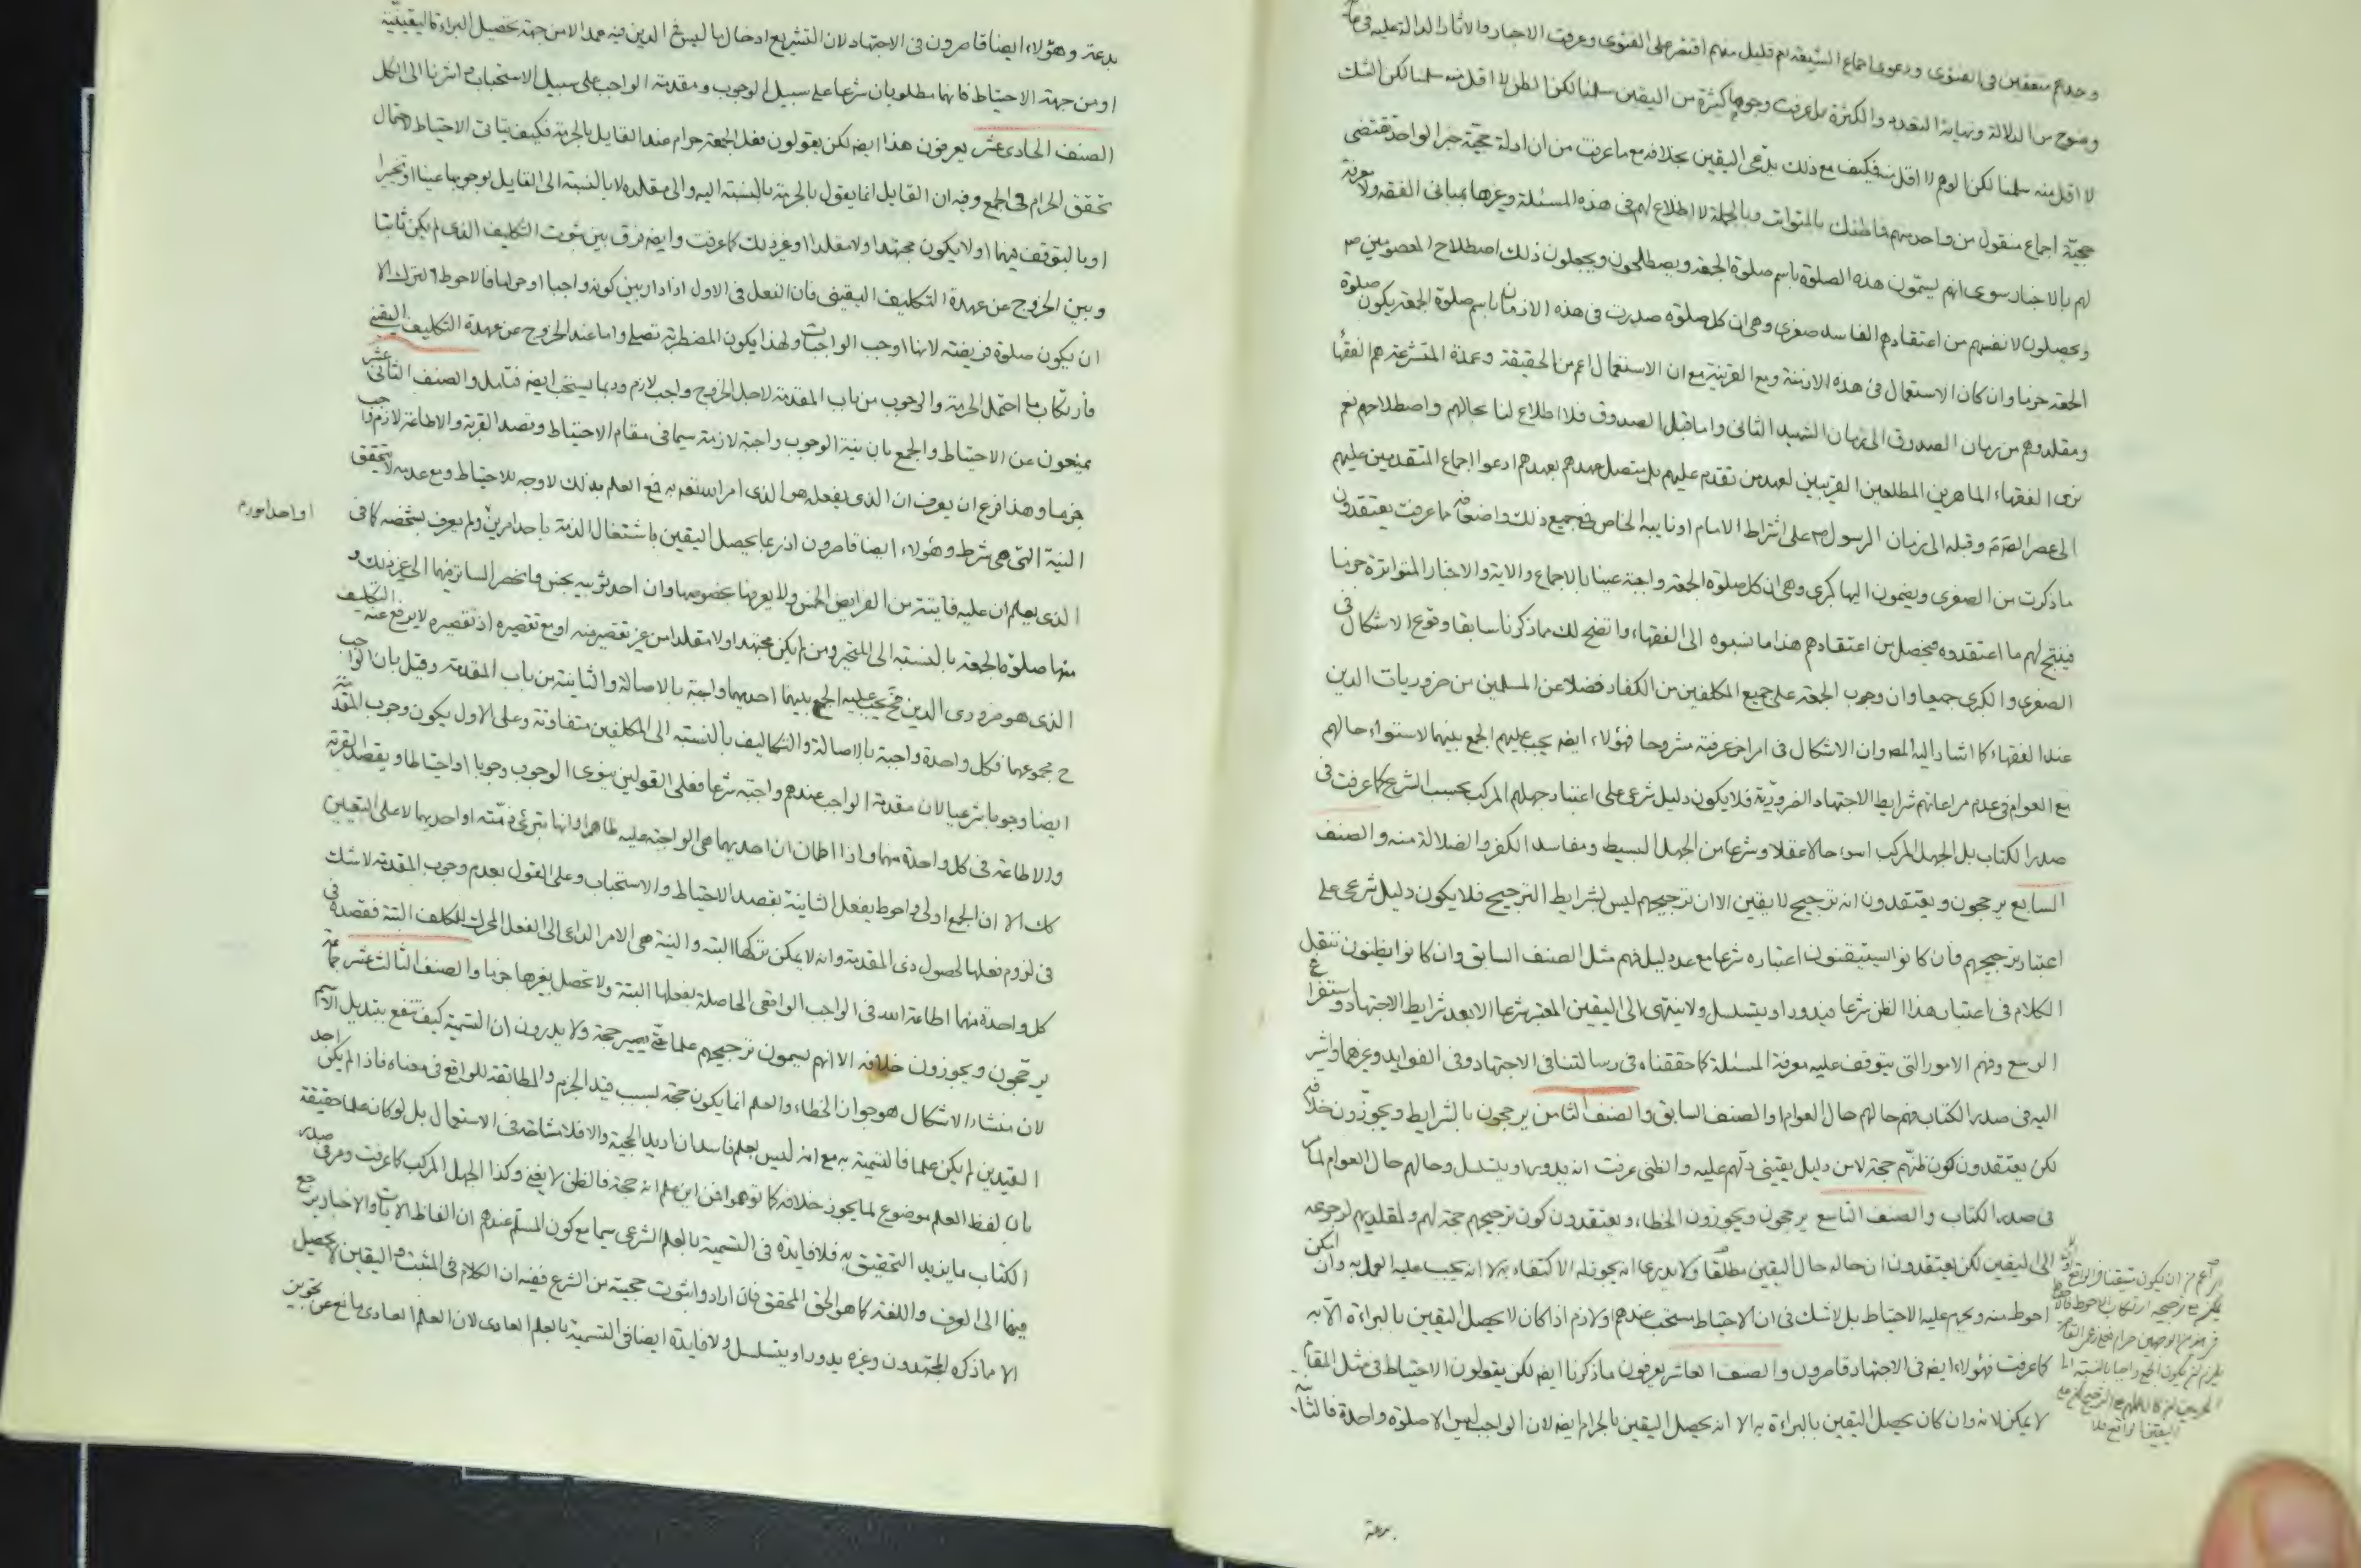 وحدهم متفقين في الفتوى ودعوى اجماع الشيعة نعم قليل منهم اقتصر على الفتوى وعرفت الاخبار والاثار الدالة عليه في
وضوح من الدلالة ونهاية التعدد والكثرة بل عرفت وجوها كثيرة من اليقين سلمنا لكن الظن لا اقل منه سلمنا لكن الشك
لا اقل منه سلمنا لكن الوهم لا اقل منه فكيف مع ذلك يدعى اليقين بخلافه مع ما عرفت من ان ادلة حجية خبر الواحد تقتضى
حجية اجماع منقول من واحد منهم فما ظنك بالمتواتر وبالجملة لا اطلاع لهم فى هذه المسئلة وغيرها بمبانى الفقه ولا معرفة
لهم بالاخبار سوى انهم يسمون هذه الصلوة باسم صلوة الجمعة ويصطلحون ويجعلون ذلك اصطلاح المعصومين ع
ويحصلون لانفسهم من اعتقادهم الفاسد صغرى وهى ان كل صلوة صدرت فى هذه الازمان باسم صلوة الجمعة يكون صلوة
الجمعة جزما وان كان الاستعمال فى هذه الازمنة ومع القرينة مع ان الاستعمال اعم من الحقيقة وعمدة المتشرعة هم الفقهاء
ومقلدوهم من زمان الصدوق الى زمان الشهيد الثانى واما قبل الصدوق فلا اطلاع لنا بحالهم واصطلاحهم نعم
نرى الفقهاء الماهرين المطلعين القريبين لعهد من تقدم عليهم بل متصل عهدهم بعهدهم ادعوا اجماع المتقدمين عليهم
الى عصر الائمة وقبله الى زمان الرسول ص على اشتراط الامام او نايبه الخاص فمع جميع ذلك واضعافه مما عرفت يعتقدون
ما ذكرت من الصغرى ويضمون اليها كبرى وهى ان كل صلوة الجمعة واجبة عينا بالاجماع والاية والاخبار المتواترة جزما
فينتج لهم ما اعتقدوه فيحصل من اعتقادهم هذا ما نسبوه الى الفقهاء واتضح لك مما ذكرنا سابقا وقوع الاشكال فى
الصغرى والكبرى جميعا وان وجوب الجمعة على جميع المكلفين من الكفار فضلا عن المسلمين من ضروريات الدين
عند الفقهاء كما اشار اليه المص وان الاشكال فى امر اخر عرفته مشروحا فهؤلاء ايضه يجب عليهم الجمع بينهما لاستواء حالهم
مع العوام فى عدم مراعاتهم شرايط الاجتهاد الضرورية فلا يكون دليل شرعى على اعتبار جهلهم المركب بحسب الشرع كما عرفت فى
صدر الكتاب بل الجهل المركب اسوء حالا عقلا وشرعا من الجهل البسيط ومفاسد الكفر والضلالة منه والصنف
السابع يرجحون ويعتقدون انه ترجيح لا يقين الا ان ترجيحهم ليس بشرايط الترجيح فلا يكون دليل شرعى على
اعتبار ترجيحهم فان كانوا يستيقنون اعتباره شرعا مع عدم دليل فهم مثل الصنف السابق وان كانوا يظنون ننقل
الكلام فى اعتبار هذا الظن شرعا فيدور او يتسلسل ولا ينتهى الى اليقين المعتبر شرعا الا بعد شرايط الاجتهاد واستفراغ
الوسع وفهم الامور التى يتوقف عليه معرفة المسئلة كما حققناه فى رسالتنا فى الاجتهاد وفى الفوايد وغيرهما واشير
اليه فى صدر الكتاب فهم حالهم حال العوام او الصنف السابق والصنف الثامن يرجحون بالشرايط ويجوزون خلافه
لكن يعتقدون كون ظنهم حجة لا من دليل يقينى دلهم عليه والظنى عرفت انه يدور او يتسلسل وحالهم حال العوام لما مر
فى صدر الكتاب والصنف التاسع يرجحون ويجوزون الخطاء ويعتقدون كون ترجيحهم حجة لهم ولمقلديهم لرجوعه
الى اليقين لكن يعتقدون ان حاله حال اليقين مطلقا ولا يدرى انه يجوز له الاكتفاء به لا انه يجب عليه العمل به وان امكن
احوط منه ويحرم عليه الاحتياط بل لا شك فى ان الاحتياط مستحب عندهم او لازم اذا كان لا يحصل اليقين بالبراءة الا به
كما عرفت فهؤلاء ايضه فى الاجتهاد قاصرون والصنف العاشر يعرفون ما ذكرنا ايضه لكن يقولون الاحتياط فى مثل المقام
لا يمكن لانه وان كان يحصل اليقين بالبراءة به الا انه يحصل اليقين بالحرام ايضه لان الواجب ليس الا صلوة واحدة فالثانية
بدعة
بدعة وهؤلاء ايضا قاصرون فى الاجتهاد لان التشريع ادخال ما ليس فى الدين فيه عمدا لا من جهة تحصيل البراءة اليقينية
او من جهة الاحتياط فانهما مطلوبان شرعا على سبيل الوجوب ومقدمة الواجب على سبيل الاستحباب واشرنا الى الكل
الصنف الحادى عشر يعرفون هذا ايضه لكن يقولون فعل الجمعة حرام عند القايل بالحرمة فكيف يتاتى الاحتياط لاحتمال
تحقق الحرام فى الجمع وفيه ان القايل انما يقول بالحرمة بالنسبة اليه والى مقلده لا بالنسبة الى القايل بوجوبها عينا او تخيرا
او بالتوقف فيهما او لا يكون مجتهدا ولا مقلدا او غير ذلك كما عرفت وايضه فرق بين ثبوت التكليف الذى لم يكن ثابتا
وبين الخروج عن عهدة التكليف اليقينى فان الفعل فى الاول اذا دار بين كونه واجبا او حراما فالاحوط الترك الا
ان يكون صلوة فريضة لانها اوجب الواجبات ولهذا يكون المضطربة تصلى واما عند الخروج عن عهدة التكليف اليقينى
فارتكاب ما احتمل الحرمة والوجوب من باب المقدمة لاجل الخروج واجب لازم وربما يستحب ايضه فتامل والصنف الثانى عشر
يمنعون عن الاحتياط والجمع بان نية الوجوب واجبة لازمة سيما فى مقام الاحتياط وقصد القربة والاطاعة لازم واجب
جزما وهذا فرع ان يعرف ان الذى يفعله هو الذى امر الله تعه به فمع العلم بذلك لا وجه للاحتياط ومع عدمه لا يتحقق
النية التى هى شرط وهؤلاء ايضا قاصرون اذ ربما يحصل اليقين باشتغال الذمة باحد امرين ولم يعرف بشخصه كما فى
او احد امور م
الذى يعلم ان عليه فايتة من الفرايض الخمس ولا يعرفها بخصوصها وان احد ثوبيه نجس وانحصر الساتر فيهما الى غير ذلك و
منها صلوة الجمعة بالنسبة الى المتحير ومن لم يكن مجتهدا ولا مقلدا من غير تقصير منه او مع تقصيره اذ تقصيره لا يرفع عنه التكليف
الذى هو ضرورى الدين فح يجب عليه الجمع بينهما احديهما واجبة بالاصالة والثانية من باب المقدمة وقيل بان الواجب
ح مجموعهما فكل واحدة واجبة بالاصالة والتكاليف بالنسبة الى المكلفين متفاوتة وعلى الاول يكون وجوب المقدمة
ايضا وجوبا شرعيا لان مقدمة الواجب عندهم واجبة شرعا فعلى القولين ينوى الوجوب وجوبا او احتياطا ويقصد القربة
والاطاعة فى كل واحدة منهما واذا اطمان ان احديهما هى الواجبة عليه ظاهرا وانها تبرئ ذمته او احديهما لا على التعيين
كك الا ان الجمع اولى واحوط يفعل الثانية بقصد الاحتياط والاستحباب وعلى القول بعدم وجوب المقدمة لا شك
فى لزوم فعلها لحصول ذى المقدمة وانه لا يمكن تركها البتة والنية هى الامر الداعى الى الفعل المحرك للمكلف البتة فقصده فى
كل واحدة منهما اطاعة الله فى الواجب الواقعى الحاصلة بفعلها البتة ولا تحصل بغيرها جزما والصنف الثالث عشر جماعة
يرجحون ويجوزون خلافه الا انهم يسمون ترجيحهم علما حتى يصير حجة ولا يدرون ان التسمية كيف تنفع بتبديل الاسم
لان منشاء الاشكال هو جواز الخطاء والعلم انما يكون حجة بسبب قيد الجزم والمطابقة للواقع فى معناه فاذا لم يكن احد
القيدين لم يكن علما فالتسمية به مع انه ليس بعلم فاسد ان اريد الحجية والا فلا مشاحة فى الاستعمال بل لو كان علما حقيقة
بان لفظ العلم موضوع لما يجوز خلافه كما توهموا فمن اين علم انه حجة فالظن لا يغنى وكذا الجهل المركب كما عرفت ومر فى صدر
الكتاب ما يزيد التحقيق به فلا فايدة فى التسمية بالعلم الشرعى سيما مع كون المسلم عندهم ان الفاظ الايات والاخبار يرجع
فيها الى العرف واللغة كما هو الحق المحقق فان ارادوا ثبوت حجيته من الشرع ففيه ان الكلام فى المثبت واليقين لا يحصيل
الا مما ذكره المجتهدون وغيره يدور او يتسلسل ولا فايدة ايضا فى التسمية بالعلم العادى لان العلم العادى مانع عن تجويز